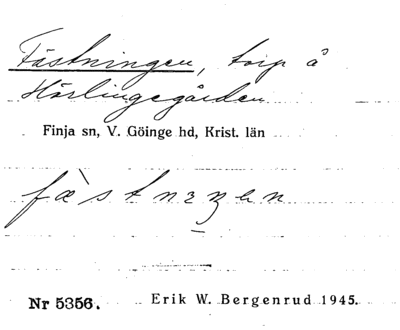 Fästningen, torp å
Hörlingegården
Finja sn, V. Göinge hd, Krist. län
Nr 5356. Erik W. Bergenrud 1945.